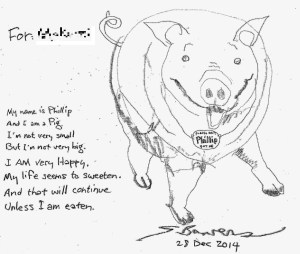 For:
My name is Phillip
And I am a Pig.
I'm not very small
But I'm not very big.
I AM very Happy,
My life seems to sweeten.
And that will continue
Unless I am eaten.
Phillip
28 Dec 2014